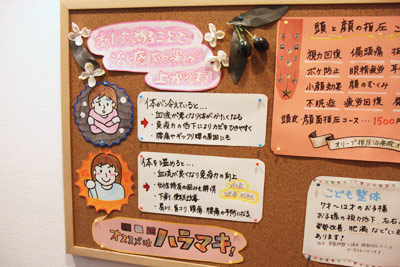 あたためることで
治療効果が
上がります!
体が冷えていると…
・血流が悪くなり体がかたくなる
・免疫力の低下によりカゼをひきやすく
・腰痛やギックリ腰の原因にも
体を温めると…
・血流が良くなり免疫力の向上
・女性特有の悩みも解消
・下痢、便秘改善
・肩こり、首こり、頭痛、腰痛の予防になる
オススメは ハラマキ!
頭と顔の指圧
視力回復 偏頭痛
ボケ防止 眼精疲労
小顔効果 顔のむくみ
不眠症 疲労回復
頭売・顔面指圧コース… 1500円
オリーブ指圧治療院
こども整体
7才~12才のお子様
お子様の視力低下
姿勢改善、肥満など
あります!